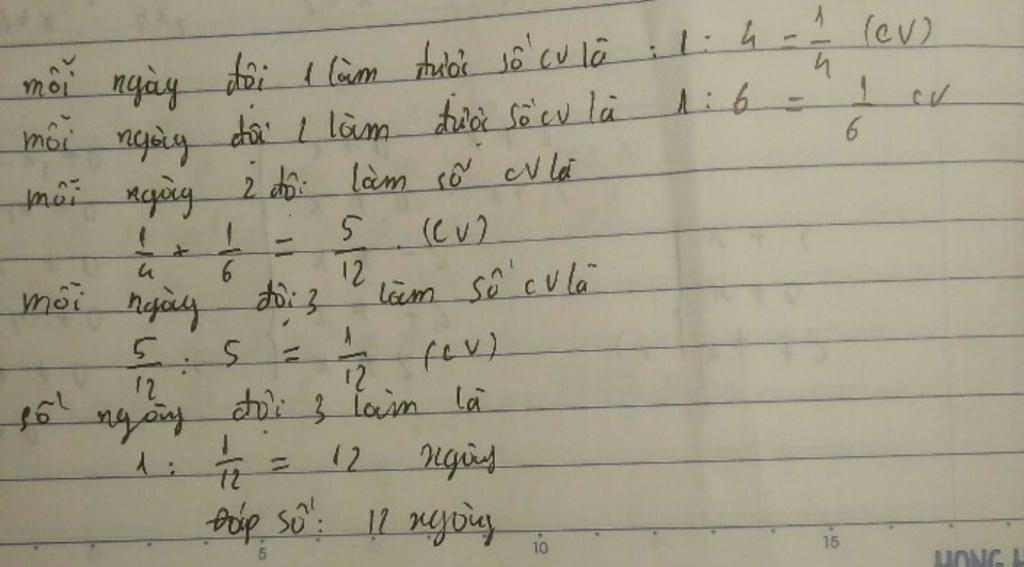 mỗi ngày đội 1 làm được số cv là : 1 : 4 = 1/4 (CV)
mỗi ngày đội 2 làm được số cv là 1 : 6 = 1/6 cv
mỗi ngày 2 đội làm số cv là
1/4 + 1/6 = 5/12 . (CV)
mỗi ngày đội 3 làm số cv là
5/12 : 5 = 1/12 (CV)
số ngày đội 3 làm là
1 : 1/12 = 12 ngày
Đáp số : 12 ngày
5 10 15